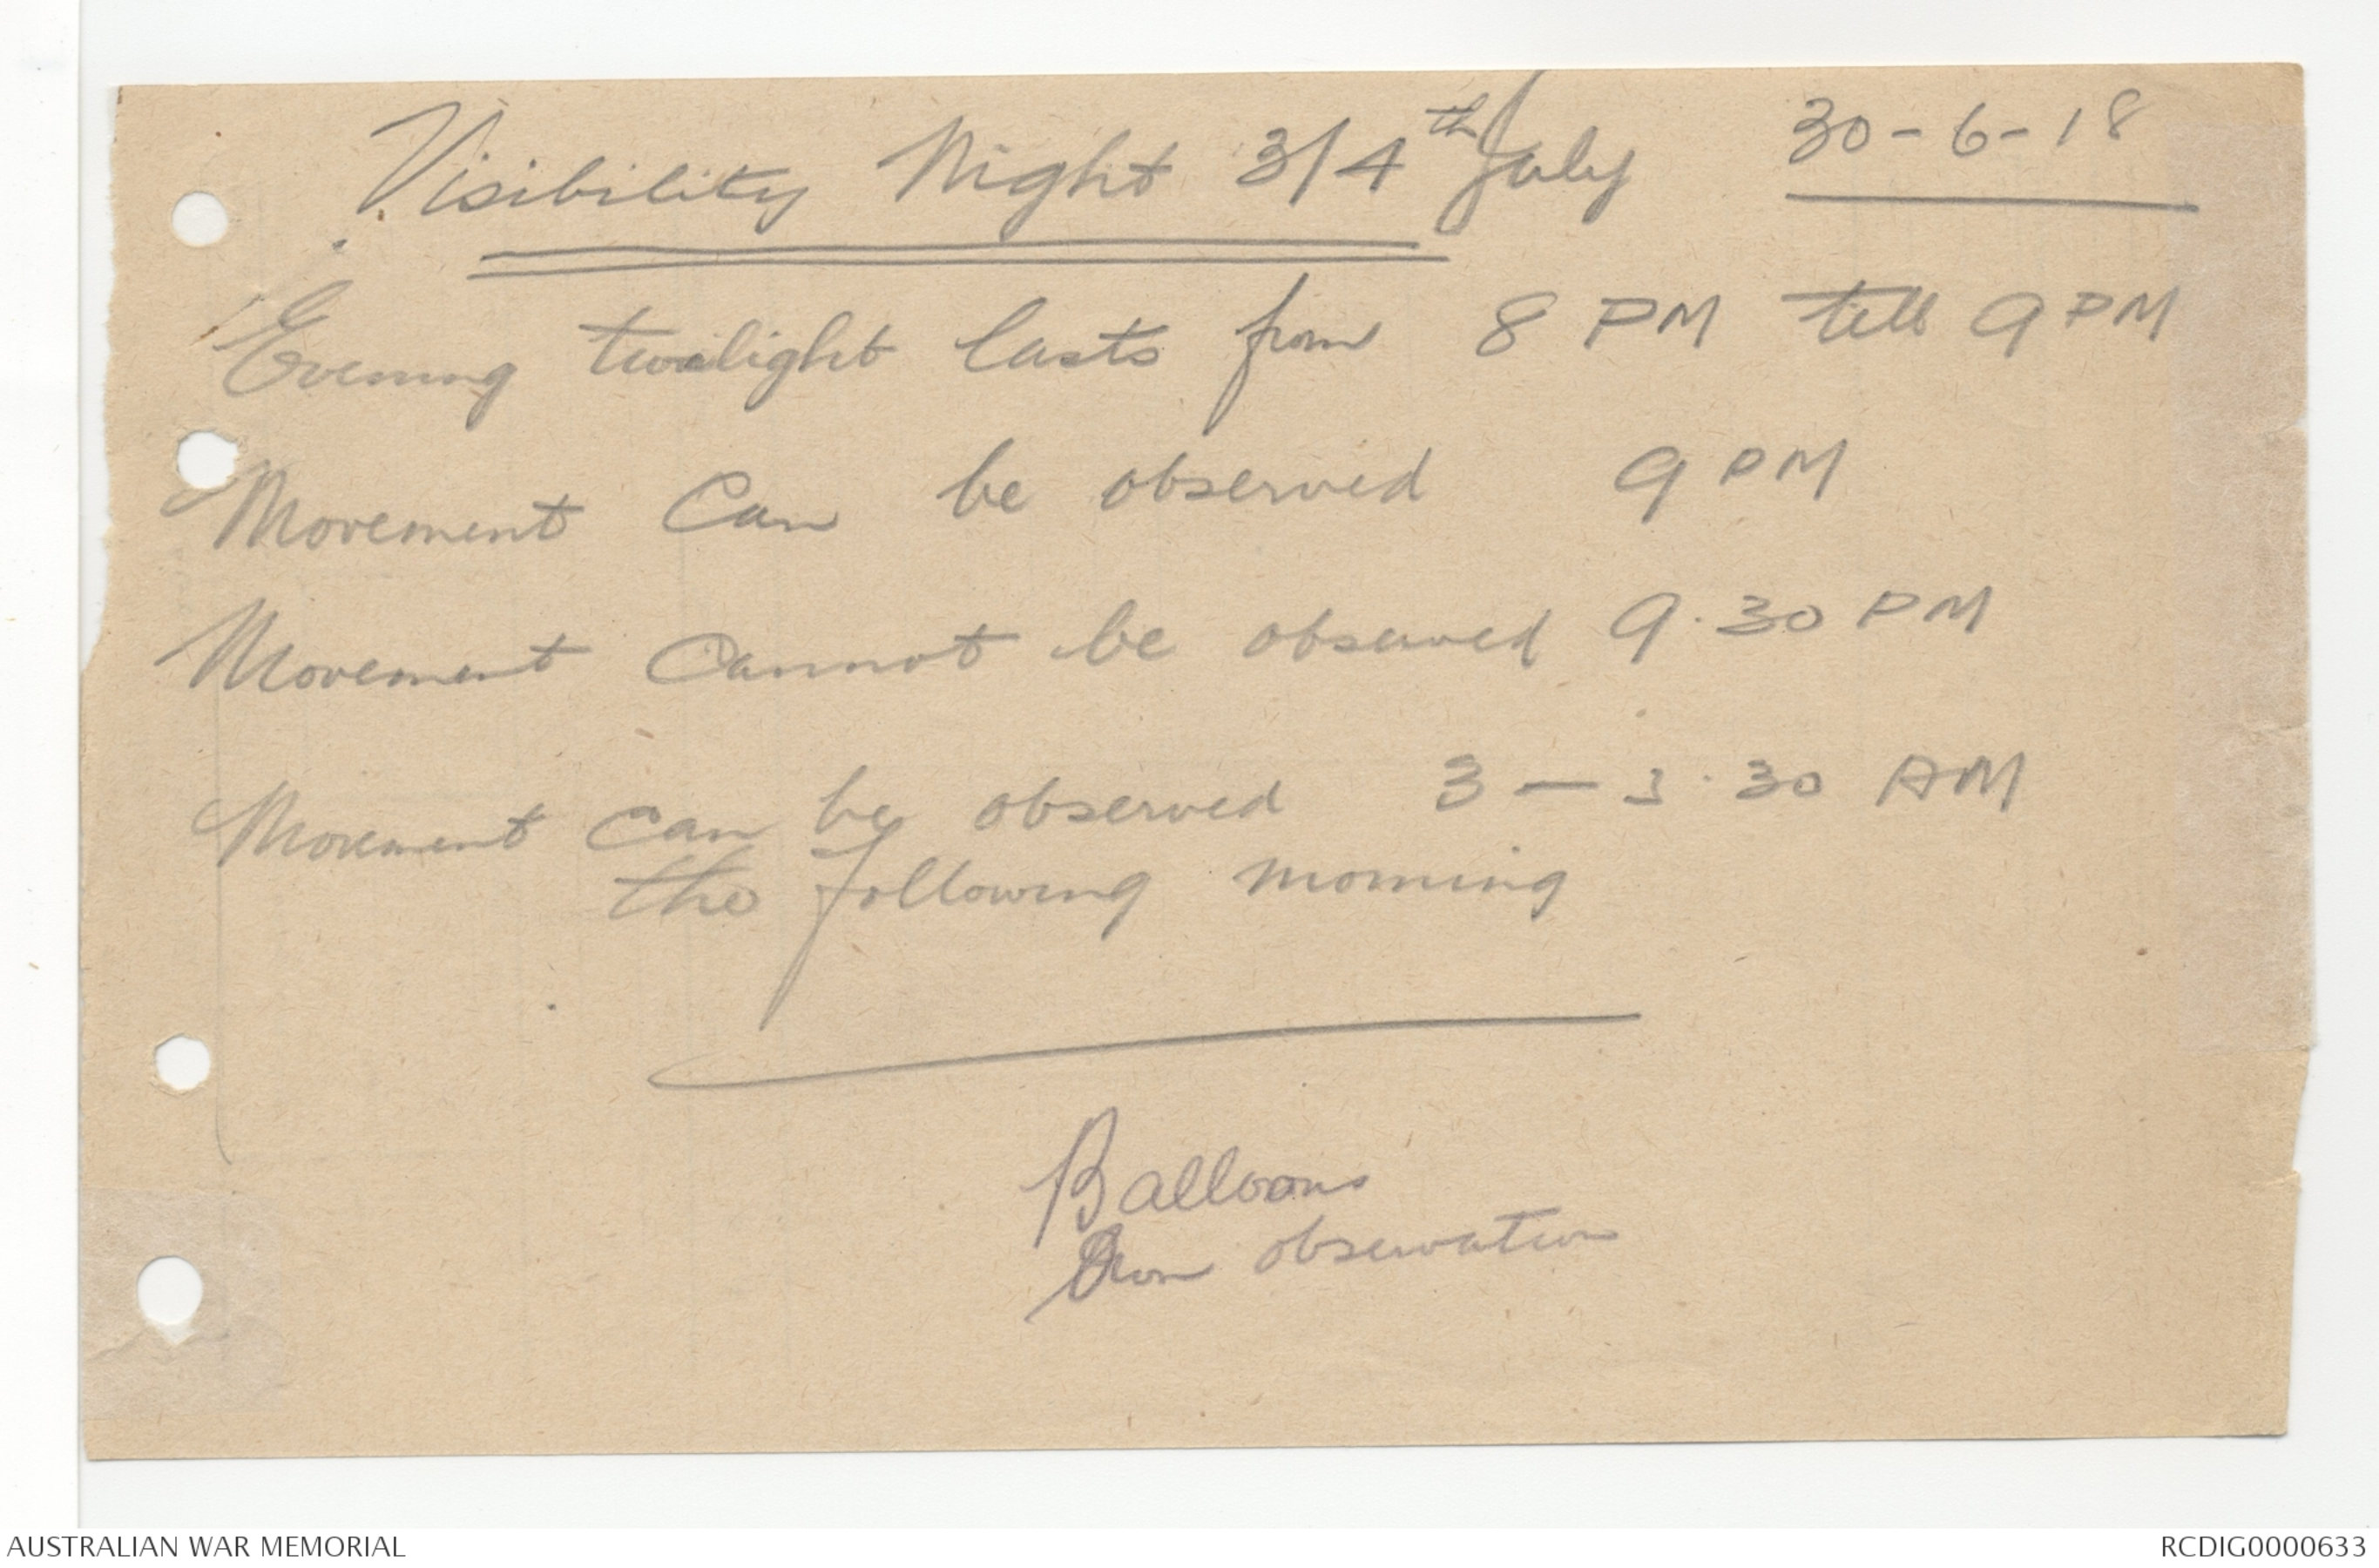 Visibility Night 3/4th July 30-6-18
Evening twilight lasts from 8 PM till 9 PM
Movement Can be observed 9 PM
Movement Cannot be observed 9.30 PM
Movement can be observed 3 — 3.30 AM
the following morning
Balloons
Own observation
AUSTRALIAN WAR MEMORIAL
RCDIG0000633